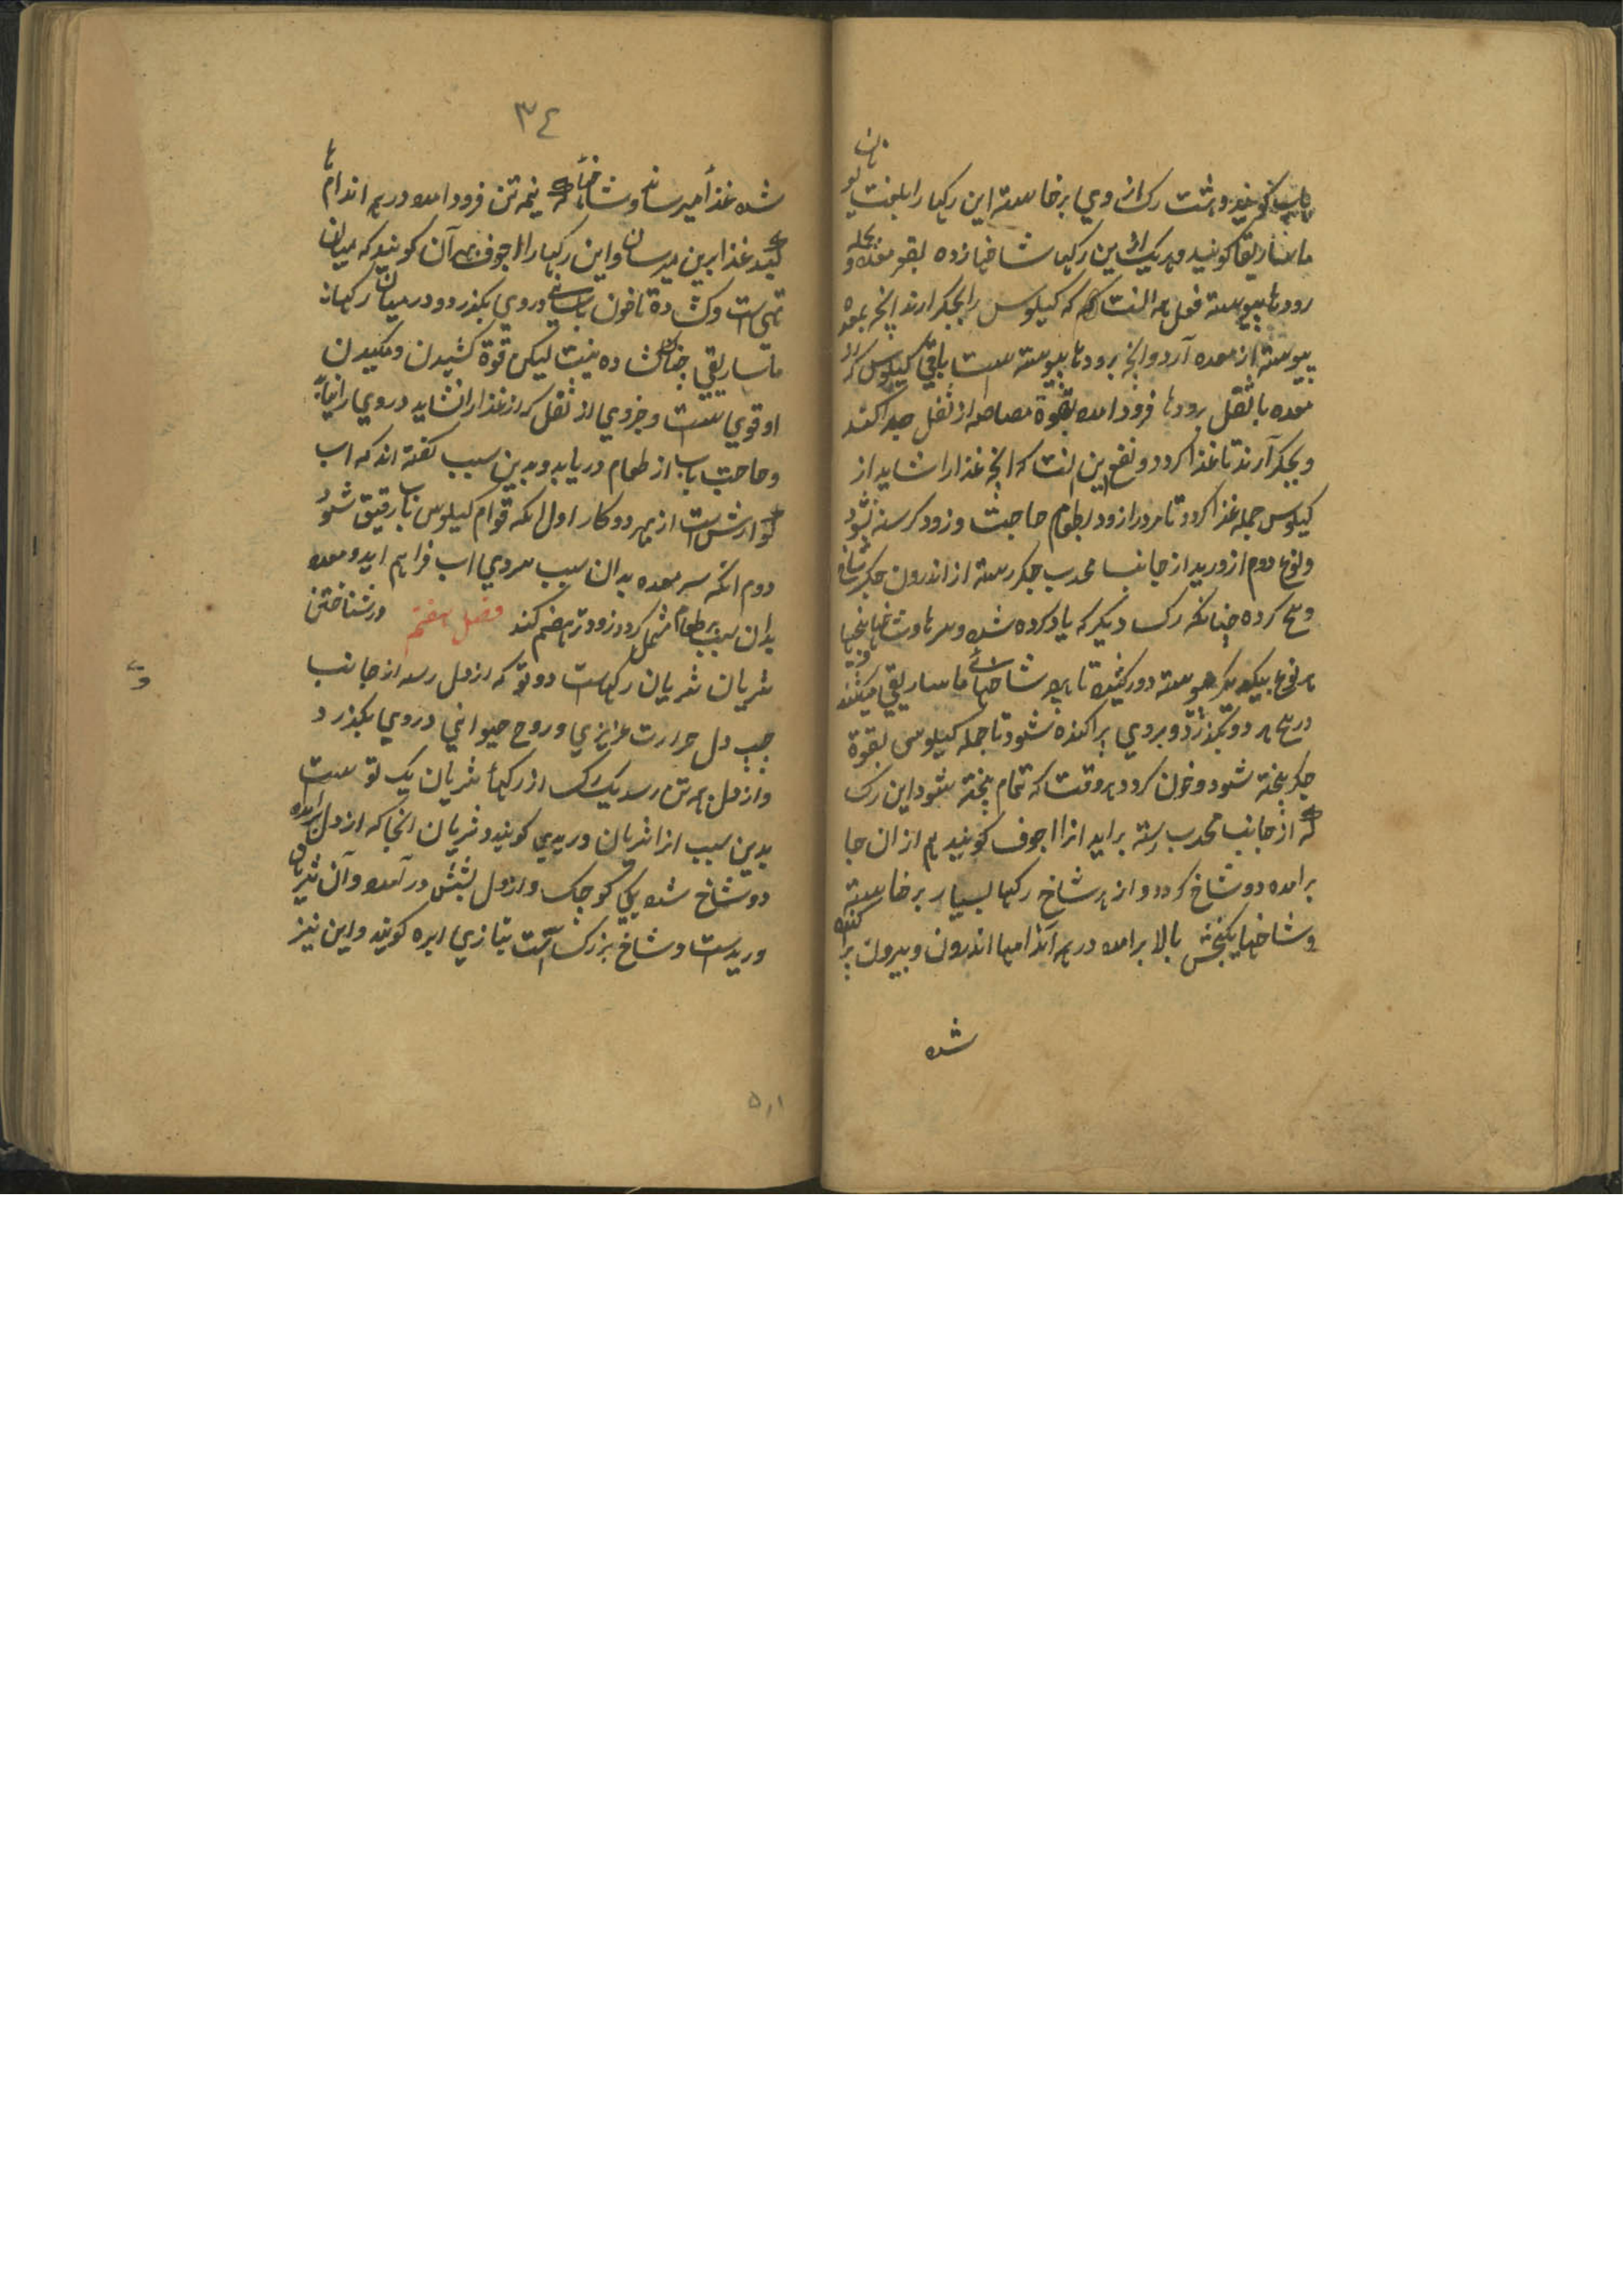 باب گویند و هشت رگ از وی برخاسته این رگها را بلغت یونان
ماساریقا گویند و هر یک ازین رگها شاخها زده بقعر معده و بجمله
رودها پیوسته فعل همه آنست که کیلوس را بجگر ارند انچه بمعده
پیوسته از معده آرد و انچه برودها پیوسته است باقی کیلوس که از
معده با ثقل برودها فرود امده بقوة مصاصه از ثفل جدا کند
و بجگر آرند تا غذا کردد و نفع این انست که انچه غذا را شاید از
کیلوس جمله غذا کردد تا مردم را زود بطعام حاجت و زود کرسنه نشود
و نوع دوم از ورید از جانب محدب جگر رسته از اندرون جگر شاخ
و بیخ کرده چنانکه رگ دیگر که یاد کرده شد و سرها و شاخها بیخها
هر نوع بیکدیگر پیوسته دور کشیده تا هرچه شاخهای ماساریقی میکشند
در بیخ هر دو بگذرد و بروی پراکنده شود تا جمله کیلوس بقوة
جگر پخته شود و خون کردد هر وقت که تمام پخته شود این رگ
که از جانب محدب رسته براید انرا اجوف گویند هم از ان جا
برامده دو شاخ کردد و از هر شاخ رگها بسیار برخاسته
و شاخها یکنجش بالا برامده در همه اندامها اندرون و بیرون پراکنده
شده
٣٤
شده غذا میرساند و شاخها که نیمه تن فرود امده در همه اندامها
غذا برین میرسان و این رگها را اجوف بهر آن گویند که میان
تهی است و کشاده تا خون باسانی در وی بگذرد و در میان رگها
ماساریقی چنان کشاده نیست لیکن قوة کشیدن و مکیدن
او قوی است و جزوی از ثفل که از غذا را نشاید در وی راه نیابد
و حاجت باب از طعام دریابد و بدین سبب گفته اند که اب
گوارش است از بهر دو کار اول انکه قوام کیلوس باب رقیق شود
دوم انکه سر معده بدان سبب سردی اب فراهم اید و معده
بدان سبب بر طعام مشتمل کردد زودتر هضم کند فصل هفتم در شناختن
شریان شریان رگهاست دو تو که از دل رسد از جانب
چپ دل حرارت غریزی و روح حیوانی در وی بگذرد
و از دل همه تن رسد یک رگ از رگهأ شریان یک تو است
بدین سبب انرا شریان وریدی گویند و شریان انجا که از دل برامده
دو شاخ شده یکی کوچک و از دل بشش در آمده و آن شریان
وریدیست و شاخ بزرگ است بتازی ابهر گویند و این نیز